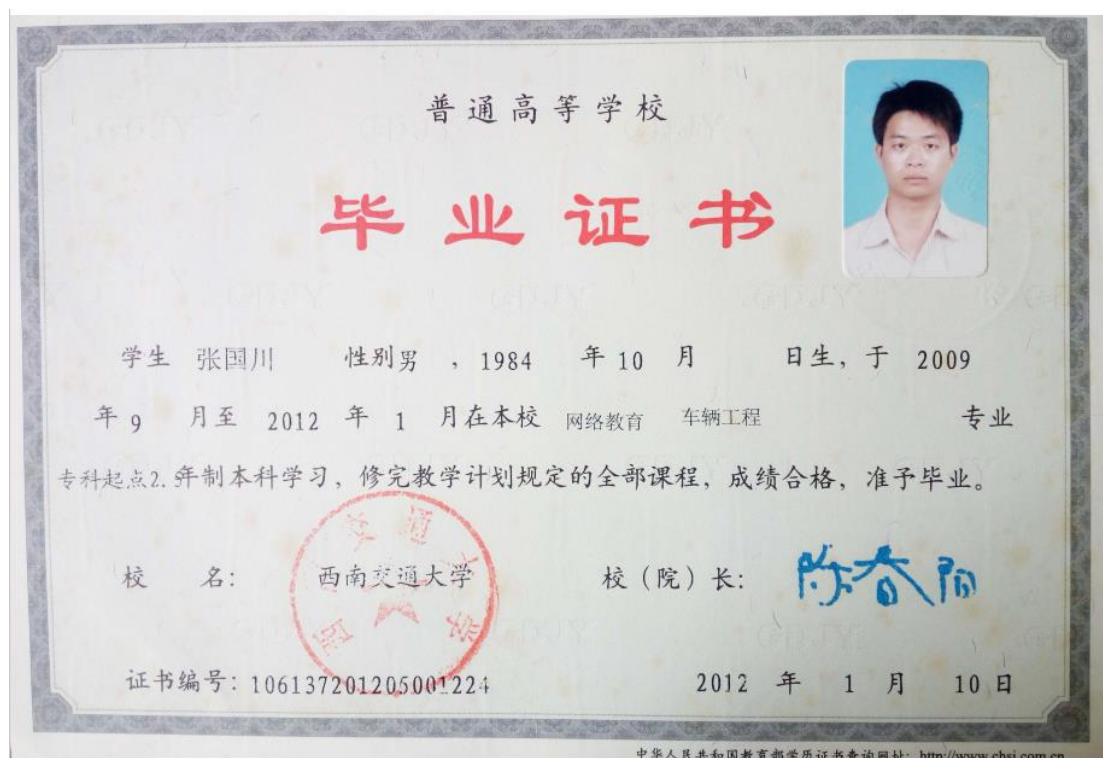 普通高等学校
毕业证书
学生 张国川 性别男 ，1984 年 10 月 日生，于 2009
年 9 月至 2012 年 1 月在本校 网络教育 车辆工程 专业
专科起点2.5年制本科学习，修完教学计划规定的全部课程，成绩合格，准予毕业。
校 名： 西南交通大学 校（院）长：
西南交通大学
证书编号：106137201205001224 2012 年 1 月 10 日
中华人民共和国教育部学历证书查询网址：http://www.chsi.com.cn